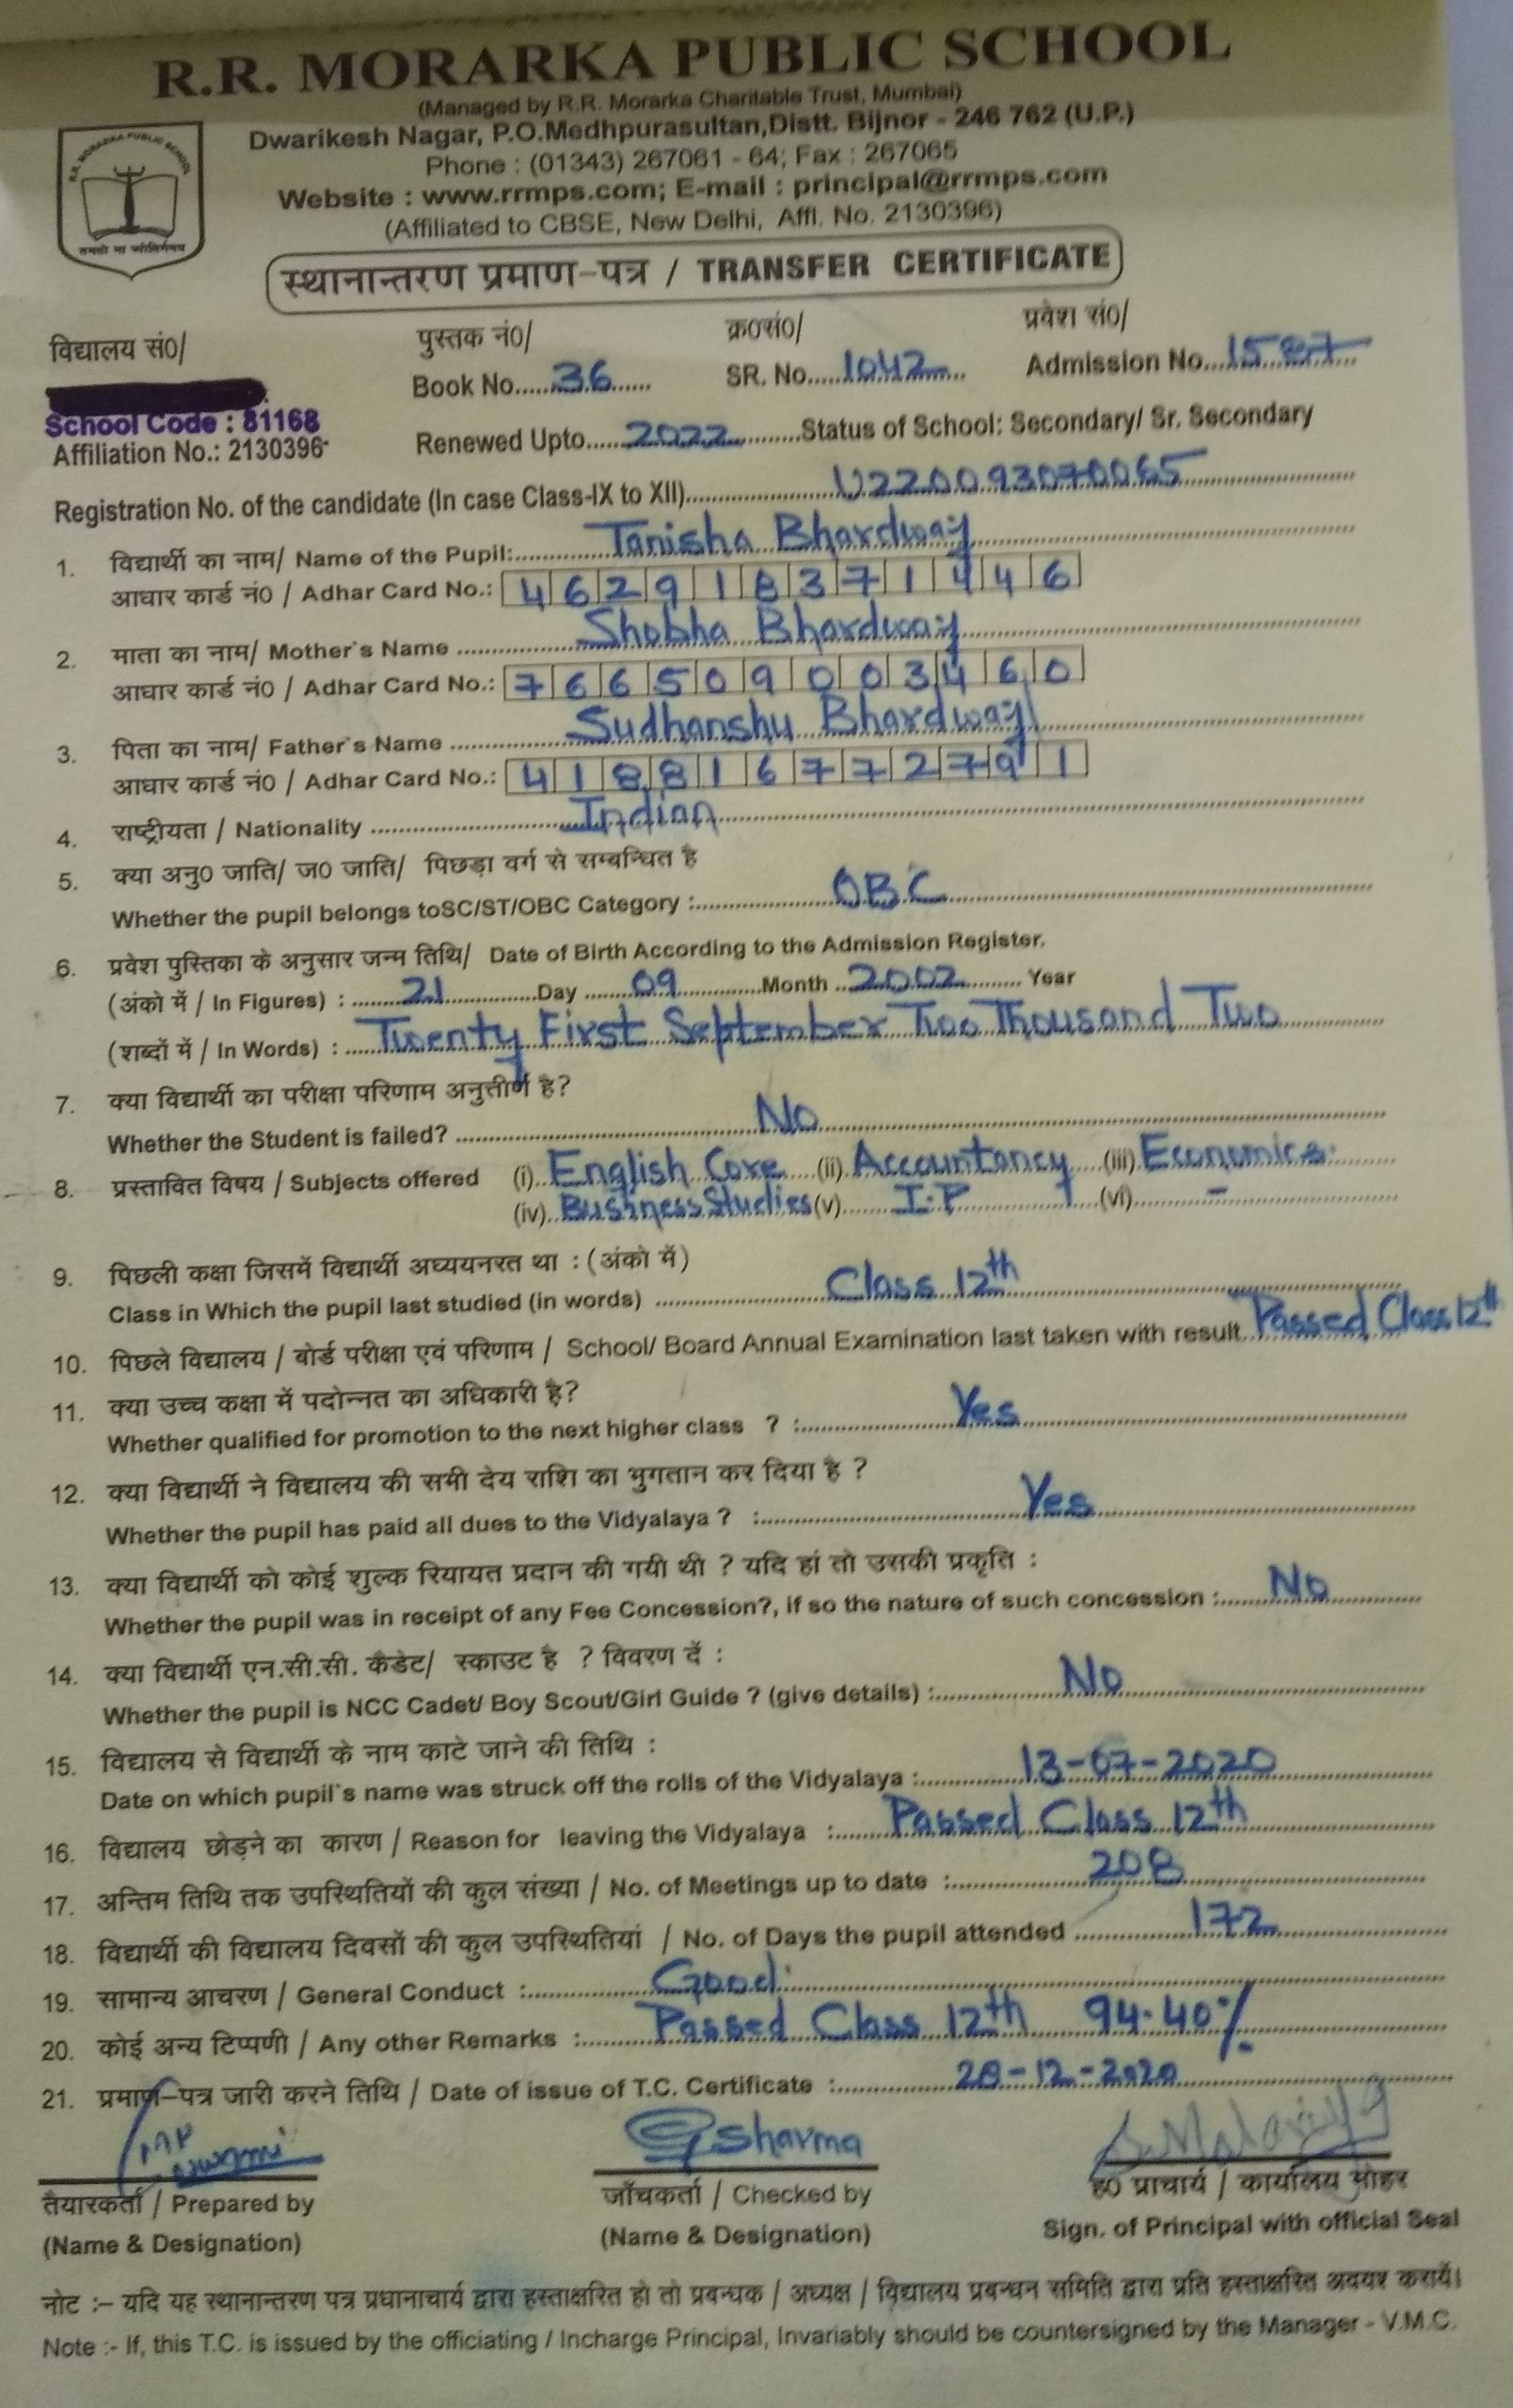 R.R. MORARKA PUBLIC SCHOOL
(Managed by R.R. Morarka Charitable Trust, Mumbai)
Dwarikesh Nagar, P.O.Medhpurasultan,Distt. Bijnor - 246 762 (U.P.)
Phone : (01343) 267061 - 64; Fax : 267065
Website : www.rrmps.com; E-mail : principal@rrmps.com
(Affiliated to CBSE, New Delhi, Affl. No. 2130396)
R.R. MORARKA PUBLIC SCHOOL
तमसो मा ज्योतिर्गमय
स्थानान्तरण प्रमाण-पत्र / TRANSFER CERTIFICATE
विद्यालय सं0/ पुस्तक नं0/ क्र0सं0/ प्रवेश सं0/
Book No......36...... SR. No.....1042...... Admission No....1587....
School Code : 81168
Affiliation No.: 2130396
Renewed Upto......2022..........Status of School: Secondary/ Sr. Secondary
Registration No. of the candidate (In case Class-IX to XII)....................U220093070065....................
1. विद्यार्थी का नाम/ Name of the Pupil:..............Tanisha Bhardwaj....................
आधार कार्ड नं0 / Adhar Card No.: 4 6 2 9 1 8 3 7 1 4 4 6
2. माता का नाम/ Mother's Name ....................Shobha Bhardwaj....................
आधार कार्ड नं0 / Adhar Card No.: 7 6 6 5 0 9 0 0 3 4 6 0
3. पिता का नाम/ Father's Name ....................Sudhanshu Bhardwaj....................
आधार कार्ड नं0 / Adhar Card No.: 4 1 8 8 1 6 7 7 2 7 9 1
4. राष्ट्रीयता / Nationality ....................Indian....................
5. क्या अनु0 जाति/ ज0 जाति/ पिछड़ा वर्ग से सम्बन्धित है
Whether the pupil belongs toSC/ST/OBC Category :....................OBC....................
6. प्रवेश पुस्तिका के अनुसार जन्म तिथि/ Date of Birth According to the Admission Register.
(अंको में / In Figures) : ........21..............Day ........09..............Month ..2002.......... Year
(शब्दों में / In Words) : .....Twenty First September Two Thousand Two..........
7. क्या विद्यार्थी का परीक्षा परिणाम अनुत्तीर्ण है?
Whether the Student is failed? ....................No....................
8. प्रस्तावित विषय / Subjects offered (i)..English Core....(ii).Accountancy....(iii).Economics..........
(iv)..Business Studies(v).......I.P...............(vi)..........-..........
9. पिछली कक्षा जिसमें विद्यार्थी अध्ययनरत था : (अंको में)
Class in Which the pupil last studied (in words) ....................Class 12th....................
10. पिछले विद्यालय / बोर्ड परीक्षा एवं परिणाम / School/ Board Annual Examination last taken with result..Passed Class 12th
11. क्या उच्च कक्षा में पदोन्नत का अधिकारी है?
Whether qualified for promotion to the next higher class ? :....................Yes....................
12. क्या विद्यार्थी ने विद्यालय की सभी देय राशि का भुगतान कर दिया है ?
Whether the pupil has paid all dues to the Vidyalaya ? :....................Yes....................
13. क्या विद्यार्थी को कोई शुल्क रियायत प्रदान की गयी थी ? यदि हां तो उसकी प्रकृति :
Whether the pupil was in receipt of any Fee Concession?, if so the nature of such concession :.......No..........
14. क्या विद्यार्थी एन.सी.सी. कैडेट/ स्काउट है ? विवरण दें :
Whether the pupil is NCC Cadet/ Boy Scout/Girl Guide ? (give details) :....................No....................
15. विद्यालय से विद्यार्थी के नाम काटे जाने की तिथि :
Date on which pupil's name was struck off the rolls of the Vidyalaya :...............13-07-2020....................
16. विद्यालय छोड़ने का कारण / Reason for leaving the Vidyalaya :.......Passed Class 12th....................
17. अन्तिम तिथि तक उपस्थितियों की कुल संख्या / No. of Meetings up to date :....................208....................
18. विद्यार्थी की विद्यालय दिवसों की कुल उपस्थितियां / No. of Days the pupil attended ...............172....................
19. सामान्य आचरण / General Conduct :....................Good....................
20. कोई अन्य टिप्पणी / Any other Remarks :..........Passed Class 12th 94.40%....................
21. प्रमाण-पत्र जारी करने तिथि / Date of issue of T.C. Certificate :...............28-12-2020....................
GSharma
तैयारकर्ता / Prepared by जाँचकर्ता / Checked by ह0 प्राचार्य / कार्यालय मोहर
(Name & Designation) (Name & Designation) Sign. of Principal with official Seal
नोट :– यदि यह स्थानान्तरण पत्र प्रधानाचार्य द्वारा हस्ताक्षरित हो तो प्रबन्धक / अध्यक्ष / विद्यालय प्रबन्धन समिति द्वारा प्रति हस्ताक्षरित अवयश्र करायें।
Note :- If, this T.C. is issued by the officiating / Incharge Principal, Invariably should be countersigned by the Manager - V.M.C.